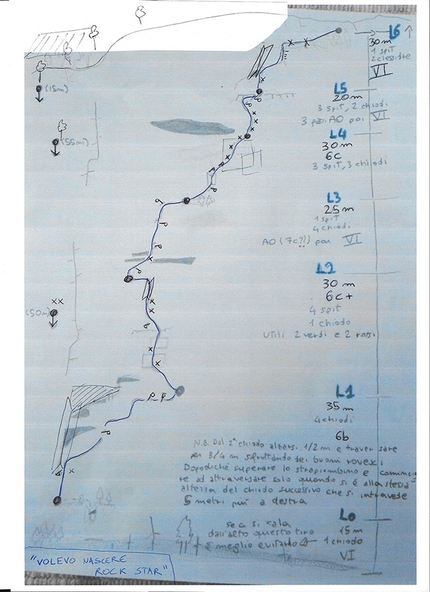 L6 ↑
30m
1 spit
2 clessidre
VI
(15m)
L5
20m
3 spit, 2 chiodi
3 passi A0 poi VI
(55m)
L4
30m
6c
3 spit, 3 chiodi
L3
25m
1 spit
4 chiodi
A0 (7c?!) poi VI
L2
30m
6c+
4 spit
1 chiodo
Utili 2 verdi e 2 rossi
xx
(50m)
L1
35m
4 chiodi
6b
N.B. Dal 2° chiodo alzarsi 1/2 m e traversare
per 3/4 m sfruttando dei buoni rovesci
Dopodiché superare lo strapiombino e cominciare
ad attraversare solo quando si è alla stessa
altezza del chiodo successivo che si intravede
5 metri più a destra
L0
15m
1 chiodo
VI
se ci si cala
dall'alto questo tiro
è meglio evitarlo
"VOLEVO NASCERE
ROCK STAR"